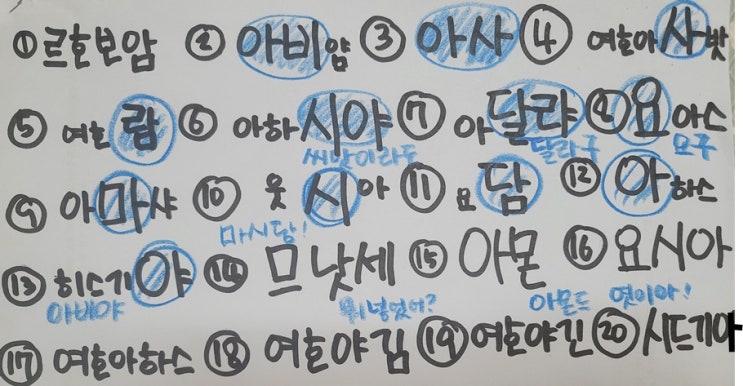 ① 르호보암 ② 아비얌 ③ 아사 ④ 여호아사밧
⑤ 여호람 ⑥ 아하시야 ⑦ 아달랴 ⑧ 요아스
씨앗이라도 달라구 요구
⑨ 아마샤 ⑩ 웃시아 ⑪ 요담 ⑫ 아하스
마시담!
⑬ 히스기야 ⑭ 므낫세 ⑮ 아몬 ⑯ 요시아
아비야 뭐넣었어? 아몬드 엿이야!
⑰ 여호아하스 ⑱ 여호야김 ⑲ 여호야긴 ⑳ 시드기야